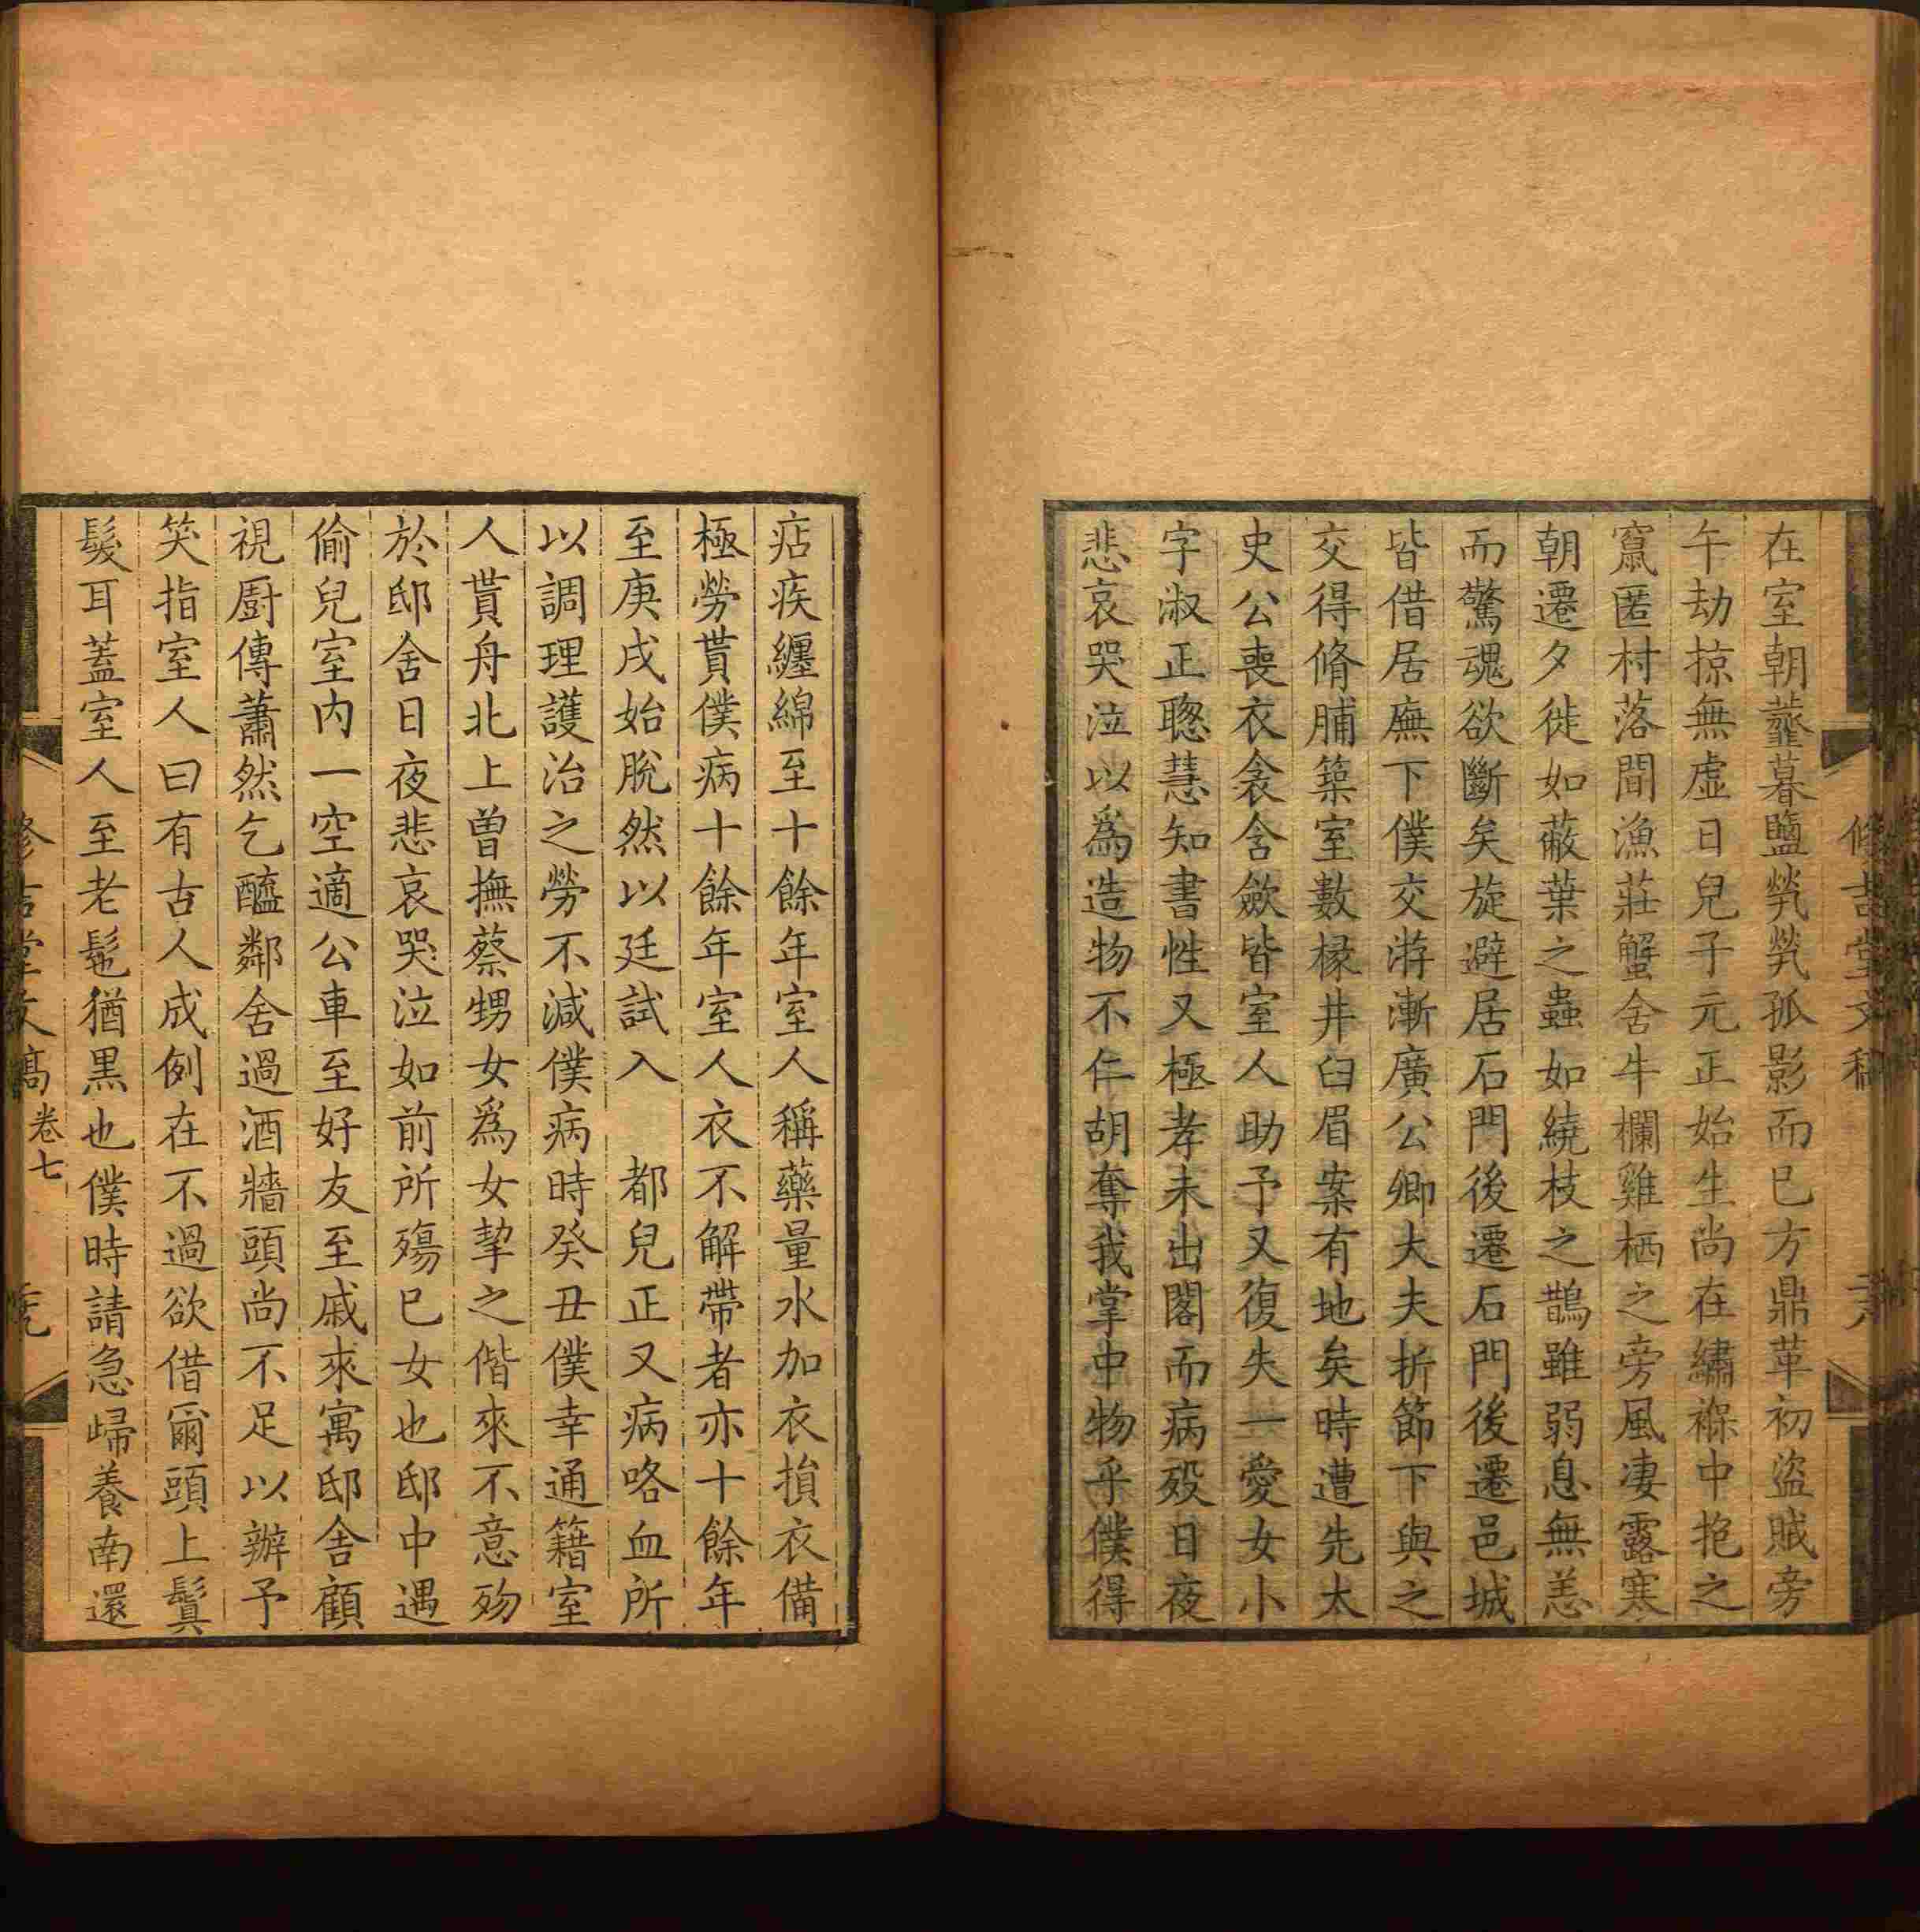 在室朝虀暮鹽煢煢孤影而已方鼎革初盜賊旁
午劫掠無虛日兒子元正始生尚在繡褓中抱之
竄匿村落間漁莊蟹舍牛欄雞栖之旁風凄露寒
朝遷夕徙如蔽葉之蟲如繞枝之鵲雖弱息無恙
而驚魂欲斷矣旋避居石門後遷石門後遷邑城
皆借居廡下僕交游漸廣公卿大夫折節下與之
交得脩脯築室數椽井臼眉案有地矣時遭先太
史公喪衣衾含歛皆室人助予又復失一愛女小
字淑正聰慧知書性又極孝未出閣而病殁日夜
悲哀哭泣以爲造物不仁胡奪我掌中物乎僕得
痁疾纏綿至十餘年室人稱藥量水加衣損衣備
極勞貰僕病十餘年室人衣不解帶者亦十餘年
至庚戌始脫然以廷試入 都兒正又病咯血所
以調理護治之勞不減僕病時癸丑僕幸通籍室
人貰舟北上曽撫蔡甥女爲女挈之偕來不意殀
於邸舍日夜悲哀哭泣如前所殤巳女也邸中遇
偷兒室内一空適公車至好友至戚來寓邸舍顧
視厨傳蕭然乞醯鄰舍過酒牆頭尚不足以辦予
笑指室人曰有古人成例在不過欲借爾頭上鬒
髮耳蓋室人至老髢猶黒也僕時請急歸養南還
修吉堂文稿
卷七